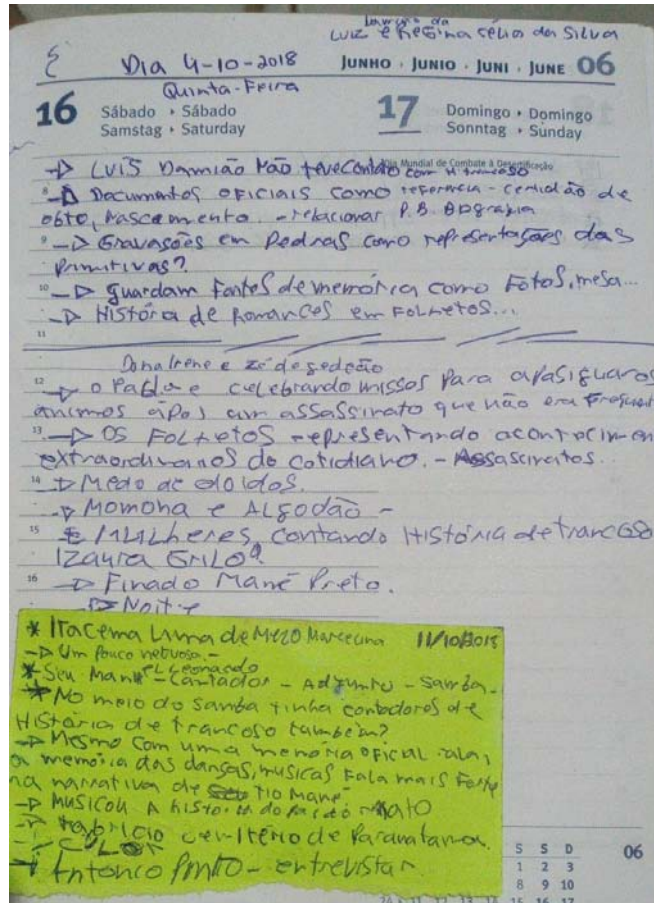 Luiz e Regina Célia da Silva
Dia 4-10-2018
JUNHO · JUNIO · JUNI · JUNE 06
Quinta-Feira
16 Sábado · Sábado
Samstag · Saturday
17 Domingo · Domingo
Sonntag · Sunday
Dia Mundial de Combate à Desertificação
→ Luis Damião não teve contato com H trancoso
8 → Documentos oficiais como referência - certidão de
obto, nascimento. - relacionar P.B.
9 → Gravasões em Pedras como representações das
Primitivas?
10 → guardam Fontes de memória como Fotos, mesa...
→ História de Romances em Folhetos...
11
Dona Irene e Zé de gedeão
12 → o Padre celebrando missas Para apasiguaros
animos após um assassinato que não era
13 → OS FOLHETOS representando
extraordinarios do cotidiano. - Assascinatos.
14 → Medo de doidos.
→ Momona e ALgodão -
15 Mulheres contando História de trancoso
Izaura Grilo?
16 → Finado Mané Preto.
→ Noite
* Iracema Lima de Melo Marcelina 11/10/2018
→ Um pouco nervosa. -
* Seu Mané Leonardo - Cantador - Adjunto - Samba -
* No meio do samba tinha contadores de
História de trancoso também?
→ Mesmo com uma memória oficial
a memória das danças, musicas Fala mais Forte
na narrativa de tio Mané
→ Musicou A história do
→ Fabricio cemitério de Paranatama.
→ Antonco Pinto - entrevistar
S S D 06
1 2 3
8 9 10
15 16 17